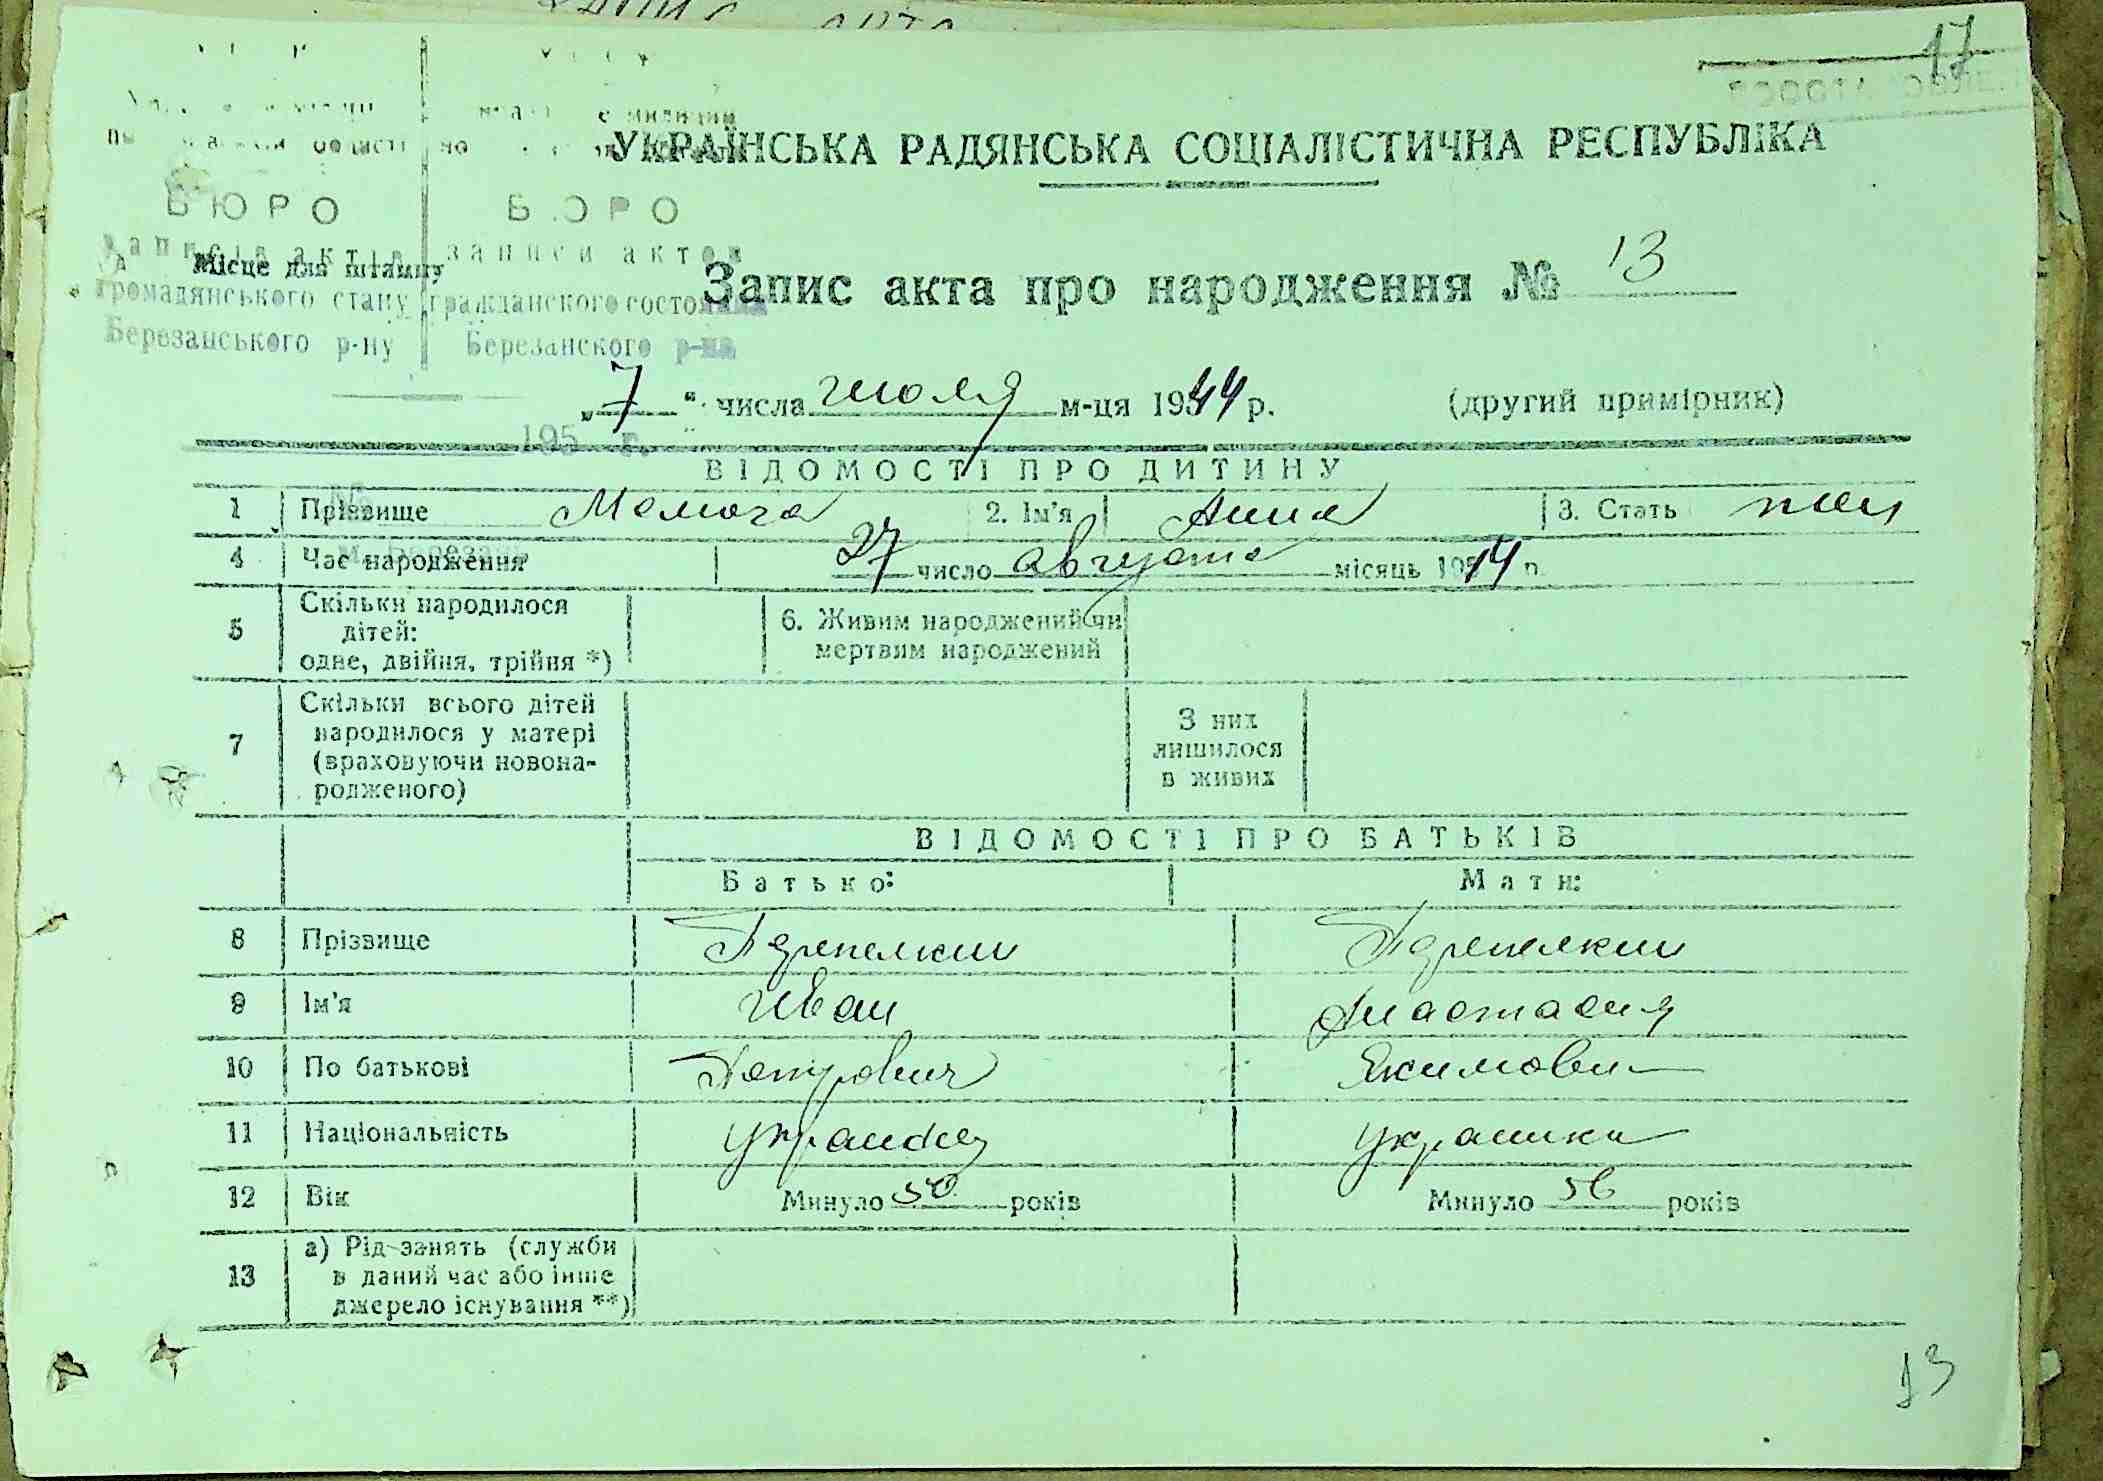 17
УКРАЇНСЬКА РАДЯНСЬКА СОЦІАЛІСТИЧНА РЕСПУБЛІКА
БЮРО БЮРО
записів актів записи актов
Місце для штампу
громадянського стану гражданского состояния
Березанського р-ну Березанского р-на
Запис акта про народження № 13
„7“ числа июля м-ця 1944 р. (другий примірник)
195 г.
ВІДОМОСТІ ПРО ДИТИНУ
1 Прізвище 2. Ім'я Анна 3. Стать жен
4 Час народження 27 число августа місяць 19 р.
5 Скільки народилося
дітей:
одне, двійня, трійня *)
6. Живим народжений чи
мертвим народжений
7 Скільки всього дітей
народилося у матері
(враховуючи новона-
родженого)
З них
лишилося
в живих
ВІДОМОСТІ ПРО БАТЬКІВ
Батько: Мати:
8 Прізвище Перепелкин Перепелкин
9 Ім'я Иван Анастасия
10 По батькові Петрович Якимовн
11 Національність украинец украинка
12 Вік Минуло років Минуло 56 років
13 а) Рід занять (служби
в даний час або інше
джерело існування **)
13